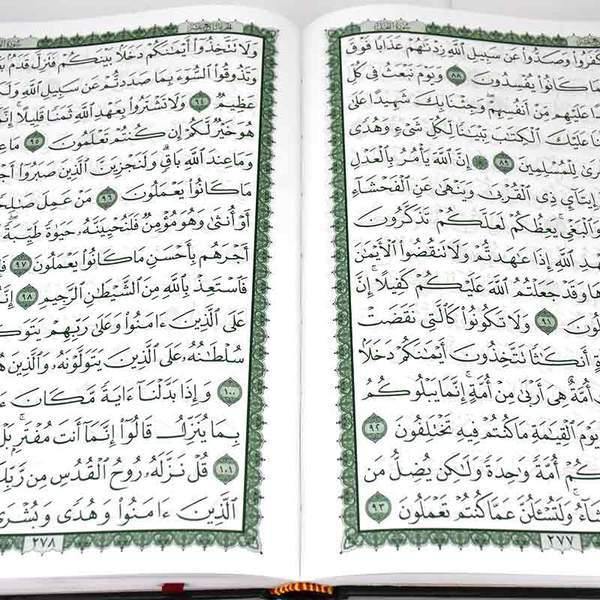 سُورَةُ النَّحْلِ
كَفَرُوا۟ وَصَدُّوا۟ عَن سَبِيلِ ٱللَّهِ زِدْنَٰهُمْ عَذَابًا فَوْقَ
مَا كَانُوا۟ يُفْسِدُونَ ٨٨ وَيَوْمَ نَبْعَثُ فِي كُلِّ
عَلَيْهِم مِّنْ أَنفُسِهِمْ وَجِئْنَا بِكَ شَهِيدًا عَلَىٰ
عَلَيْكَ ٱلْكِتَٰبَ تِبْيَٰنًا لِّكُلِّ شَيْءٍ وَهُدًى
لِلْمُسْلِمِينَ ٨٩ ۞ إِنَّ ٱللَّهَ يَأْمُرُ بِٱلْعَدْلِ
وَإِيتَآيِٕ ذِي ٱلْقُرْبَىٰ وَيَنْهَىٰ عَنِ ٱلْفَحْشَآءِ
وَٱلْبَغْيِ يَعِظُكُمْ لَعَلَّكُمْ تَذَكَّرُونَ
ٱللَّهِ إِذَا عَٰهَدتُّمْ وَلَا تَنقُضُوا۟ ٱلْأَيْمَٰنَ
وَقَدْ جَعَلْتُمُ ٱللَّهَ عَلَيْكُمْ كَفِيلًا إِنَّ
٩١ وَلَا تَكُونُوا۟ كَٱلَّتِي نَقَضَتْ
أَنكَٰثًا تَتَّخِذُونَ أَيْمَٰنَكُمْ دَخَلًۢا
أُمَّةٌ هِيَ أَرْبَىٰ مِنْ أُمَّةٍ إِنَّمَا يَبْلُوكُمُ
يَوْمَ ٱلْقِيَٰمَةِ مَا كُنتُمْ فِيهِ تَخْتَلِفُونَ ٩٢
أُمَّةً وَٰحِدَةً وَلَٰكِن يُضِلُّ مَن
وَلَتُسْـَٔلُنَّ عَمَّا كُنتُمْ تَعْمَلُونَ ٩٣
٢٧٧
وَلَا تَتَّخِذُوٓا۟ أَيْمَٰنَكُمْ دَخَلًۢا بَيْنَكُمْ فَتَزِلَّ قَدَمٌۢ
وَتَذُوقُوا۟ ٱلسُّوٓءَ بِمَا صَدَدتُّمْ عَن سَبِيلِ ٱللَّهِ
عَظِيمٌ ٩٤ وَلَا تَشْتَرُوا۟ بِعَهْدِ ٱللَّهِ ثَمَنًا قَلِيلًا
هُوَ خَيْرٌ لَّكُمْ إِن كُنتُمْ تَعْلَمُونَ ٩٥
وَمَا عِندَ ٱللَّهِ بَاقٍ وَلَنَجْزِيَنَّ ٱلَّذِينَ صَبَرُوٓا۟
مَا كَانُوا۟ يَعْمَلُونَ ٩٦ مَنْ عَمِلَ
أَوْ أُنثَىٰ وَهُوَ مُؤْمِنٌ فَلَنُحْيِيَنَّهُۥ حَيَوٰةً طَيِّبَةً
أَجْرَهُم بِأَحْسَنِ مَا كَانُوا۟ يَعْمَلُونَ ٩٧
فَٱسْتَعِذْ بِٱللَّهِ مِنَ ٱلشَّيْطَٰنِ ٱلرَّجِيمِ ٩٨
عَلَى ٱلَّذِينَ ءَامَنُوا۟ وَعَلَىٰ رَبِّهِمْ
سُلْطَٰنُهُۥ عَلَى ٱلَّذِينَ يَتَوَلَّوْنَهُۥ وَٱلَّذِينَ
١٠٠ وَإِذَا بَدَّلْنَآ ءَايَةً مَّكَانَ
بِمَا يُنَزِّلُ قَالُوٓا۟ إِنَّمَآ أَنتَ مُفْتَرٍۭ بَلْ
١٠١ قُلْ نَزَّلَهُۥ رُوحُ ٱلْقُدُسِ مِن رَّبِّكَ
ٱلَّذِينَ ءَامَنُوا۟ وَهُدًى وَبُشْرَىٰ
٢٧٨